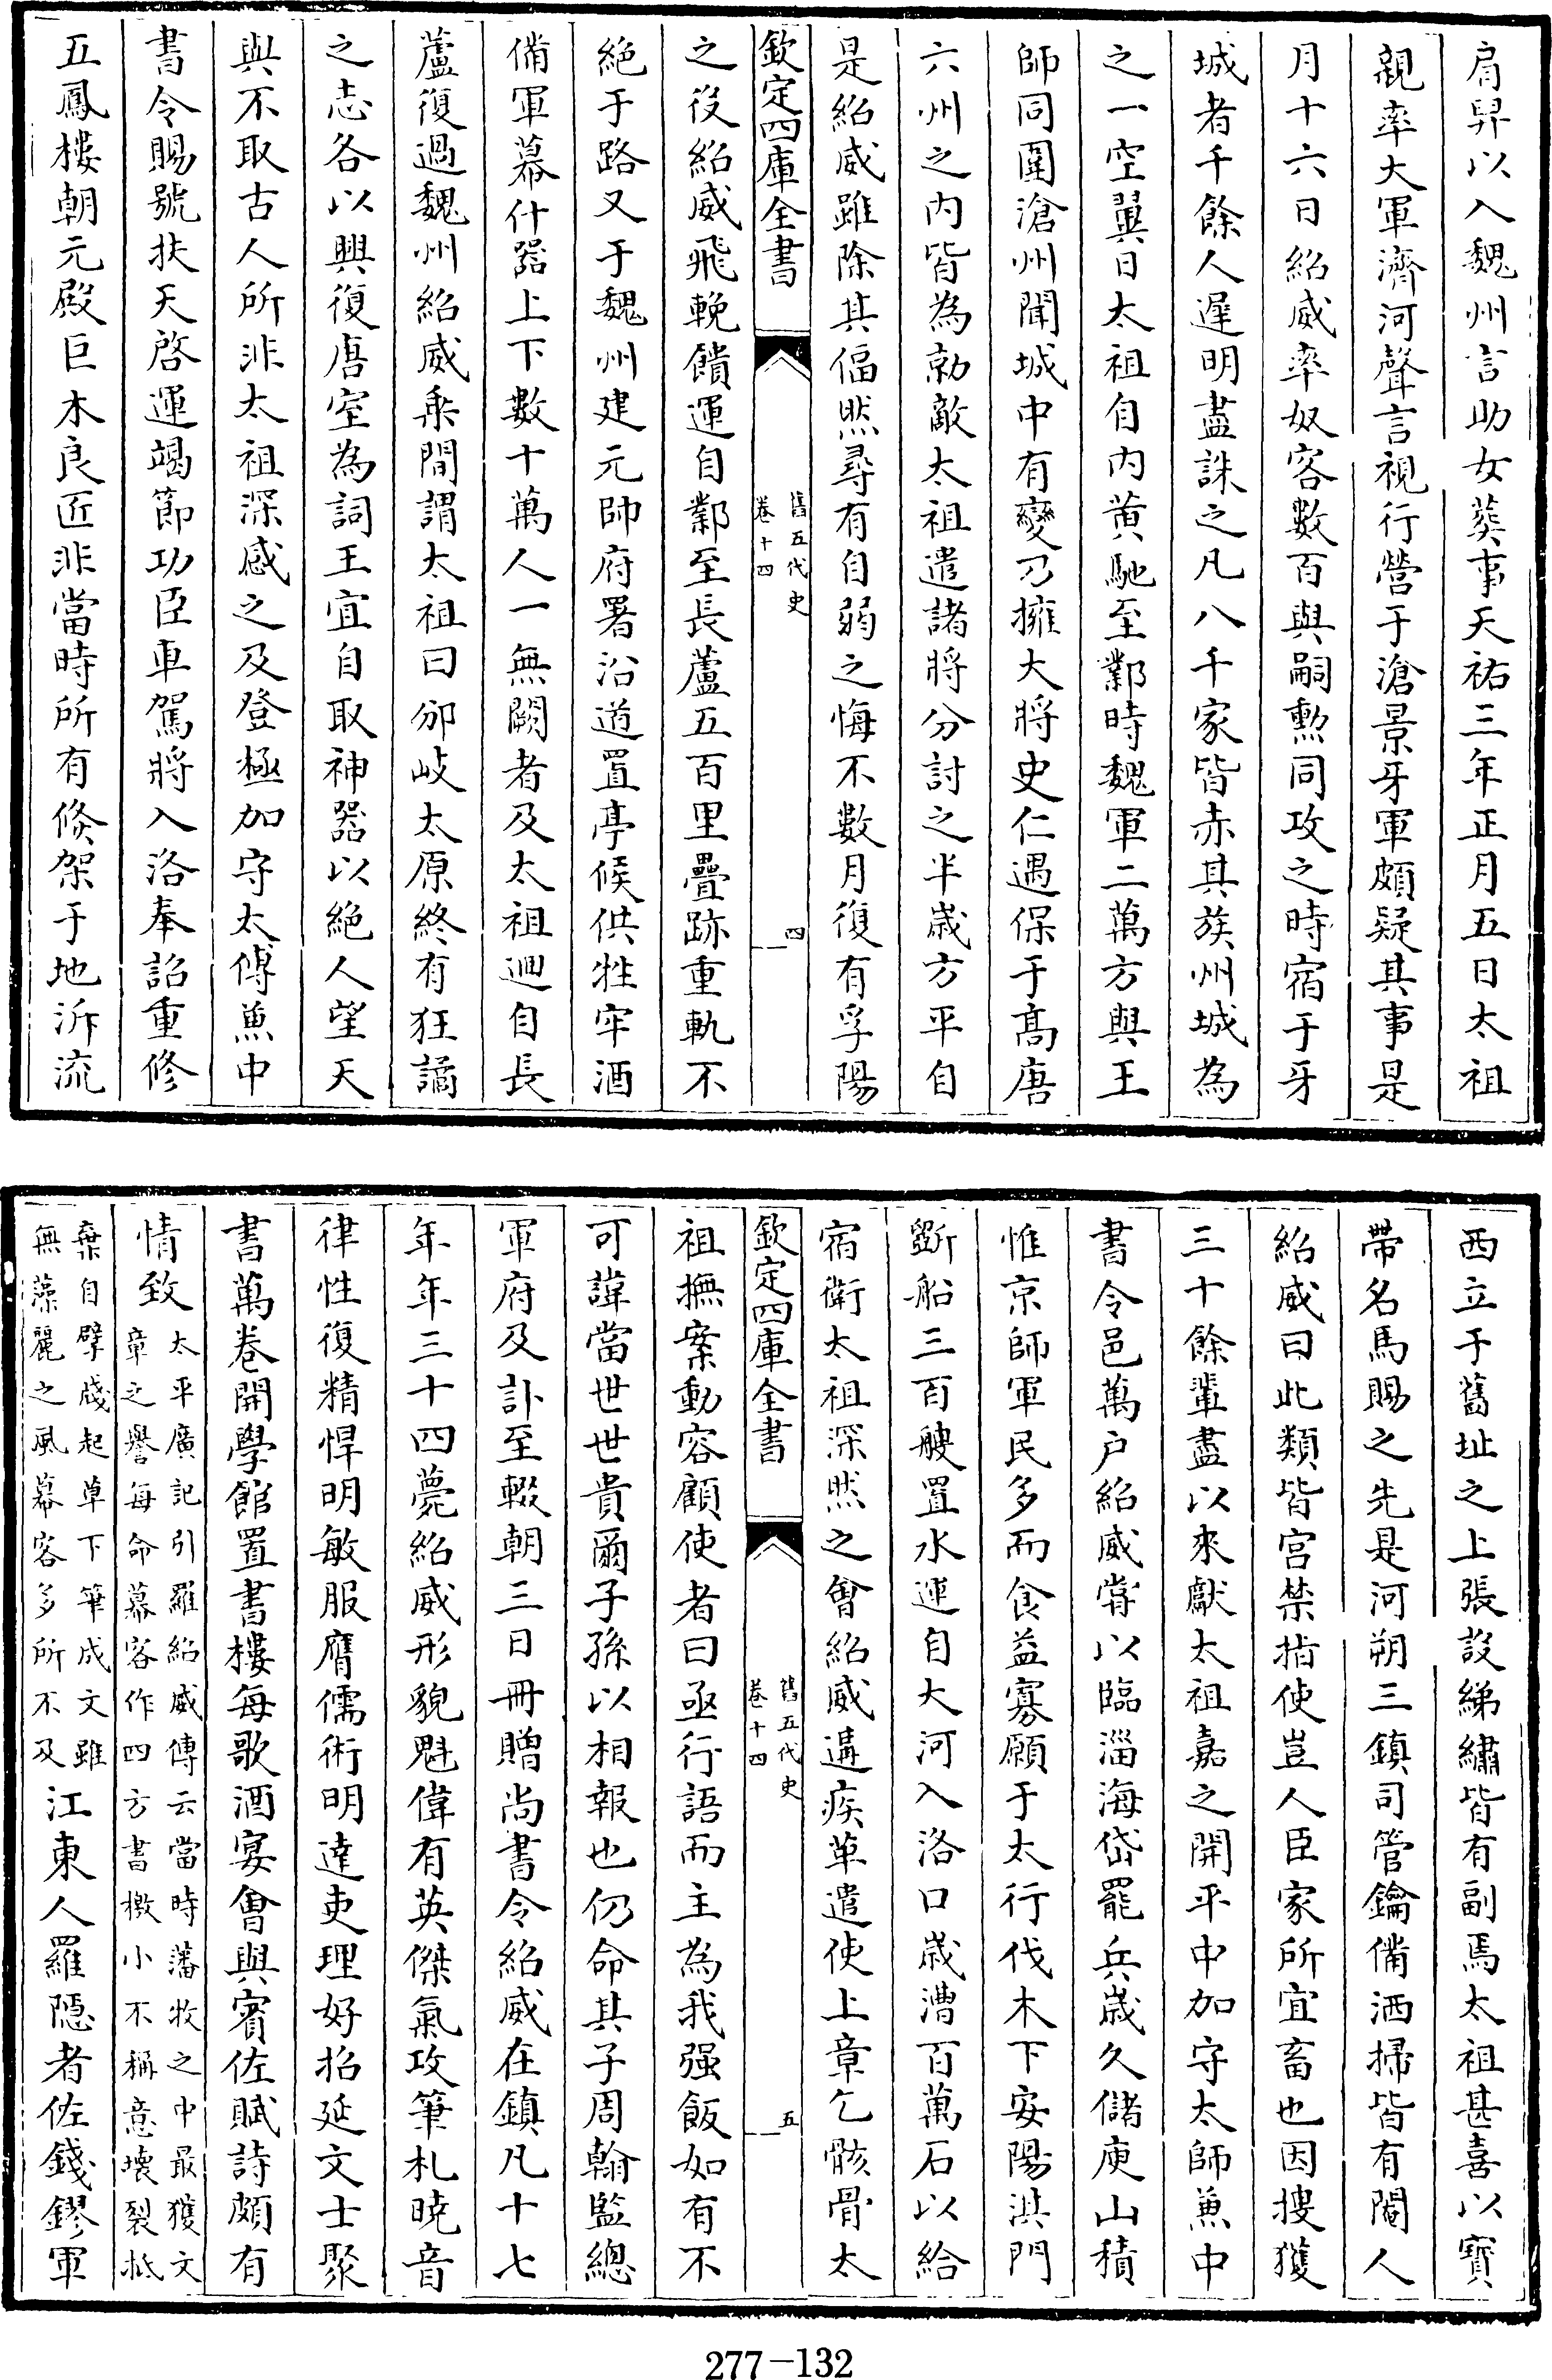 肩舁以入魏州言助女葬事天祐三年正月五日太祖
親率大軍濟河聲言視行營于滄景牙軍頗疑其事是
月十六日紹威率奴客數百與嗣勲同攻之時宿于牙
城者千餘人遲明盡誅之凡八千家皆赤其族州城為
之一空翼日太祖自内黄馳至鄴時魏軍二萬方與王
師同圍滄州聞城中有變乃擁大將史仁遇保于髙唐
六州之内皆為勍敵太祖遣諸將分討之半歳方平自
是紹威雖除其偪然尋有自弱之悔不數月復有浮陽
欽定四庫全書
舊五代史
卷十四
四
之役紹威飛輓饋運自鄴至長蘆五百里疊跡重軌不
絶于路又于魏州建元帥府署沿道置亭候供牲牢酒
備軍幕什器上下數十萬人一無闕者及太祖廻自長
蘆復過魏州紹威乗間謂太祖曰邠岐太原終有狂譎
之志各以興復唐室為詞王宜自取神器以絶人望天
與不取古人所非太祖深感之及登極加守太傅兼中
書令賜號扶天啓運竭節功臣車駕將入洛奉詔重修
五鳳樓朝元殿巨木良匠非當時所有倐架于地泝流
西立于舊址之上張設綈繡皆有副焉太祖甚喜以寳
帶名馬賜之先是河朔三鎮司管鑰備洒掃皆有閹人
紹威曰此類皆宫禁指使豈人臣家所宜畜也因搜獲
三十餘輩盡以來獻太祖嘉之開平中加守太師兼中
書令邑萬户紹威嘗以臨淄海岱罷兵歳久儲庾山積
惟京師軍民多而食益寡願于太行伐木下安陽淇門
斵船三百艘置水運自大河入洛口歳漕百萬石以給
宿衛太祖深然之會紹威遘疾革遣使上章乞骸骨太
欽定四庫全書
舊五代史
卷十四
五
祖撫案動容顧使者曰亟行語而主為我强飯如有不
可諱當世世貴爾子孫以相報也仍命其子周翰監總
軍府及訃至輟朝三日冊贈尚書令紹威在鎮凡十七
年年三十四薨紹威形貌魁偉有英傑氣攻筆札曉音
律性復精悍明敏服膺儒術明達吏理好招延文士聚
書萬卷開學館置書樓每歌酒宴會與賓佐賦詩頗有
情致太平廣記引羅紹威傳云當時藩牧之中最獲文
章之譽每命幕客作四方書檄小不稱意壊裂抵
棄自擘牋起草下筆成文雖
無藻麗之風幕客多所不及江東人羅隠者佐錢鏐軍
277-132